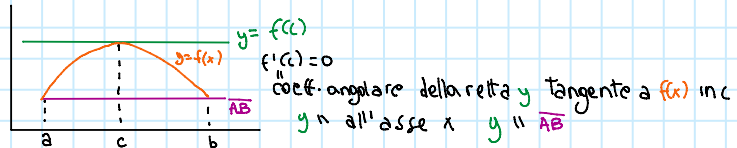 y = f(c)
y=f(x)
f'(c) = 0
"
coeff. angolare della retta y tangente a f(x) in c
y " all'asse x y " AB
AB
a c b